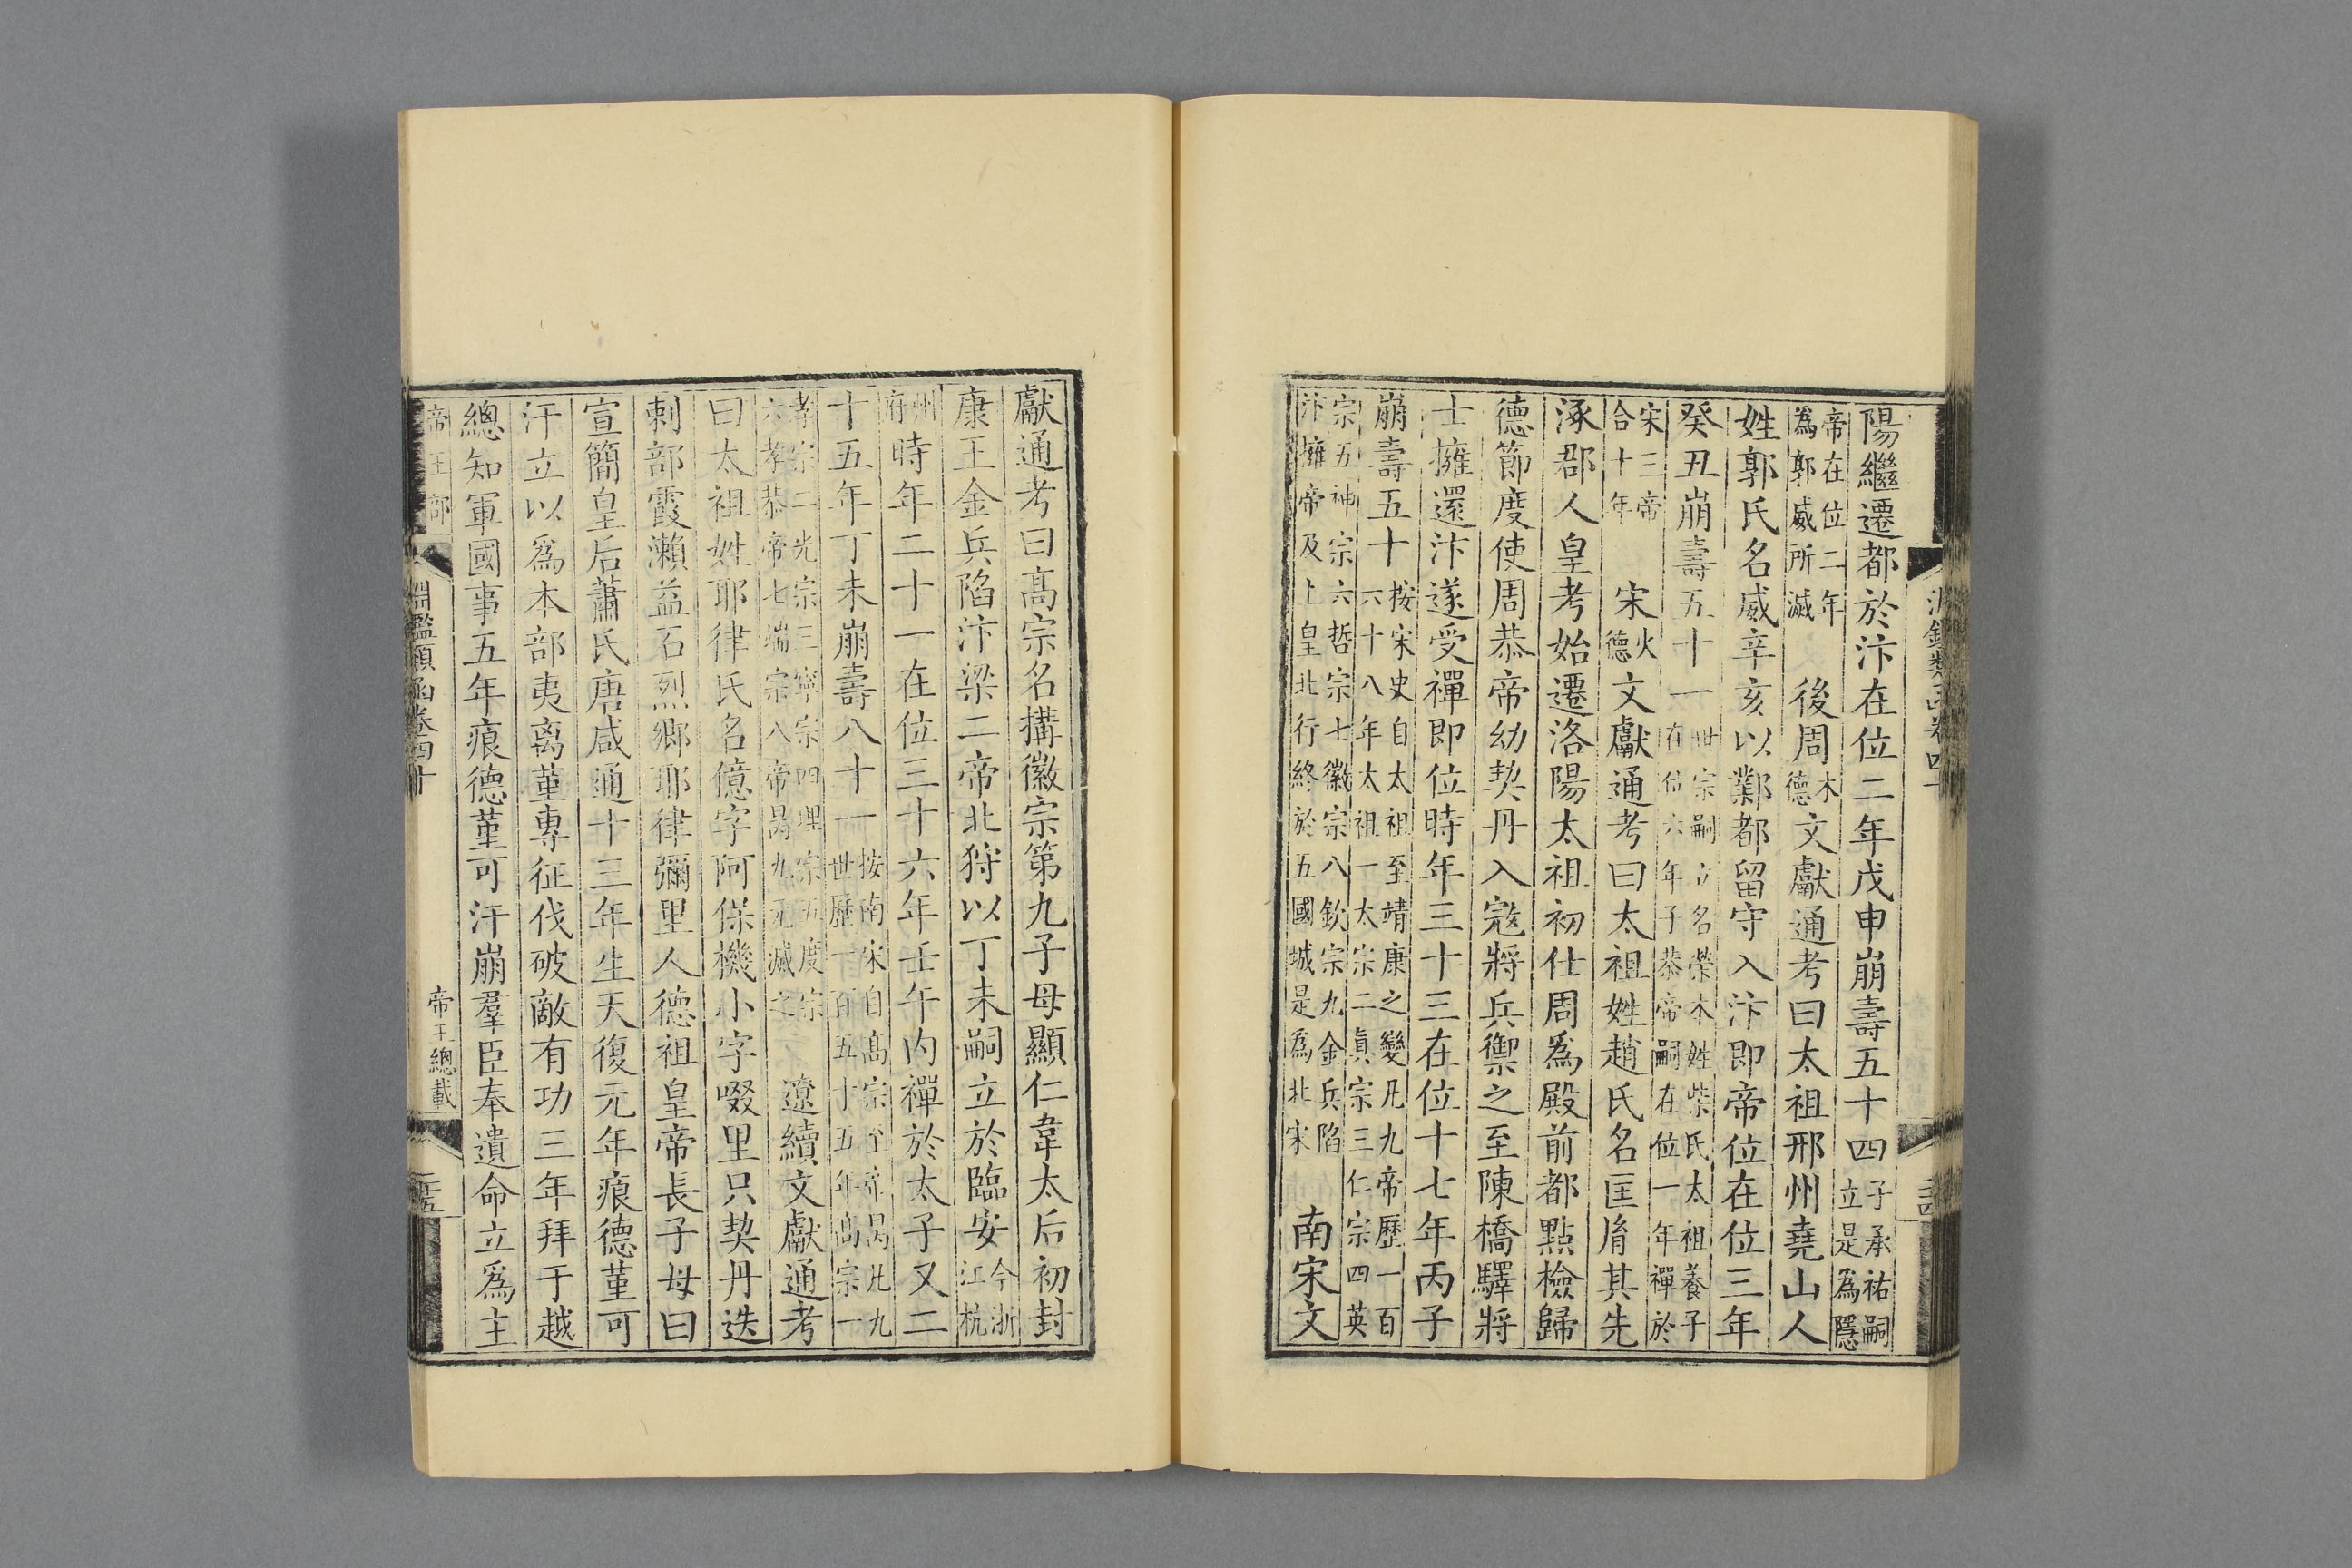 陽繼遷都於汴在位二年戊申崩壽五十四子承祐嗣立是為隱
帝在位二年為郭威所滅 後周木德文獻通考曰太祖邢州堯山人
姓郭氏名威辛亥以鄴都留守入汴即帝位在位三年
癸丑崩壽五十一世宗嗣立名榮本姓柴氏太祖養子在位六年子恭帝嗣在位一年禪於
宋三帝合十年 宋火德文獻通考曰太祖姓趙氏名匡胤其先
涿郡人皇考始遷洛陽太祖初仕周為殿前都點檢歸
德節度使周恭帝幼契丹入寇將兵禦之至陳橋驛將
士擁還汴遂受禪即位時年三十三在位十七年丙子
崩壽五十按宋史自太祖至靖康之變凡九帝歷一百六十八年太祖一太宗二真宗三仁宗四英
宗五神宗六哲宗七徽宗八欽宗九金兵陷汴擁帝及上皇北行終於五國城是為北宋 南宋文
獻通考曰高宗名構徽宗第九子母顯仁韋太后初封
康王金兵陷汴梁二帝北狩以丁未嗣立於臨安今浙江杭
州府時年二十一在位三十六年壬午内禪於太子又二
十五年丁未崩壽八十一按南宋自高宗至帝昺凡九世歷一百五十五年高宗一
孝宗二光宗三寧宗四理宗五度宗六孝恭帝七端宗八帝昺九元滅之 遼續文獻通考
曰太祖姓耶律氏名億字阿保機小字啜里只契丹迭
剌部霞瀨益石烈鄉耶律彌里人德祖皇帝長子母曰
宣簡皇后蕭氏唐咸通十三年生天復元年痕德菫可
汗立以為本部夷离菫專征伐破敵有功三年拜于越
總知軍國事五年痕德菫可汗崩羣臣奉遺命立為主
帝王部 淵鑑類函卷四十 帝王總載 二五